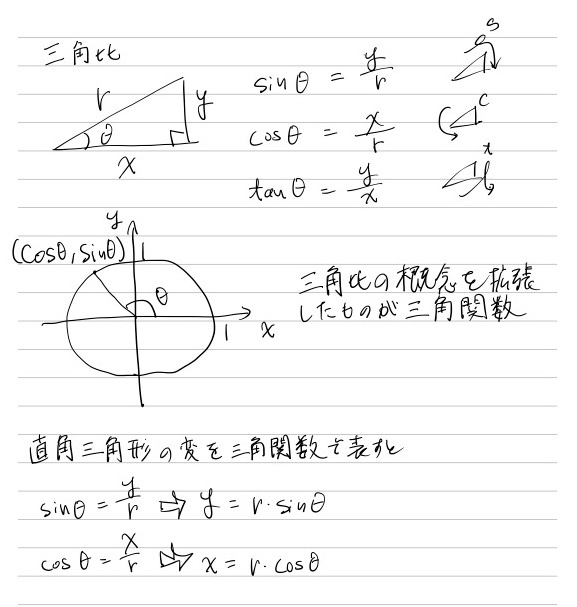 三角比
r
y
θ
x
sinθ = y/r
s
cosθ = x/r
c
tanθ = y/x
t
y
(cosθ, sinθ)
1
θ
1
x
三角比の概念を拡張
したものが三角関数
直角三角形の変を三角関数で表すと
sinθ = y/r ⇨ y = r・sinθ
cosθ = x/r ⇨ x = r・cosθ